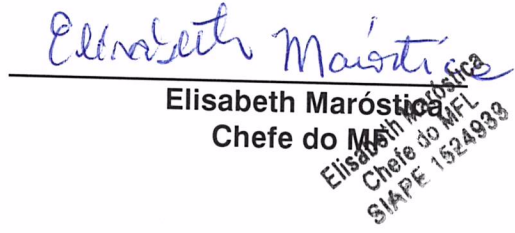 Elisabeth Maróstica
Elisabeth Maróstica
Chefe do MFL
Elisabeth Maróstica
Chefe do MFL
SIAPE 1524933